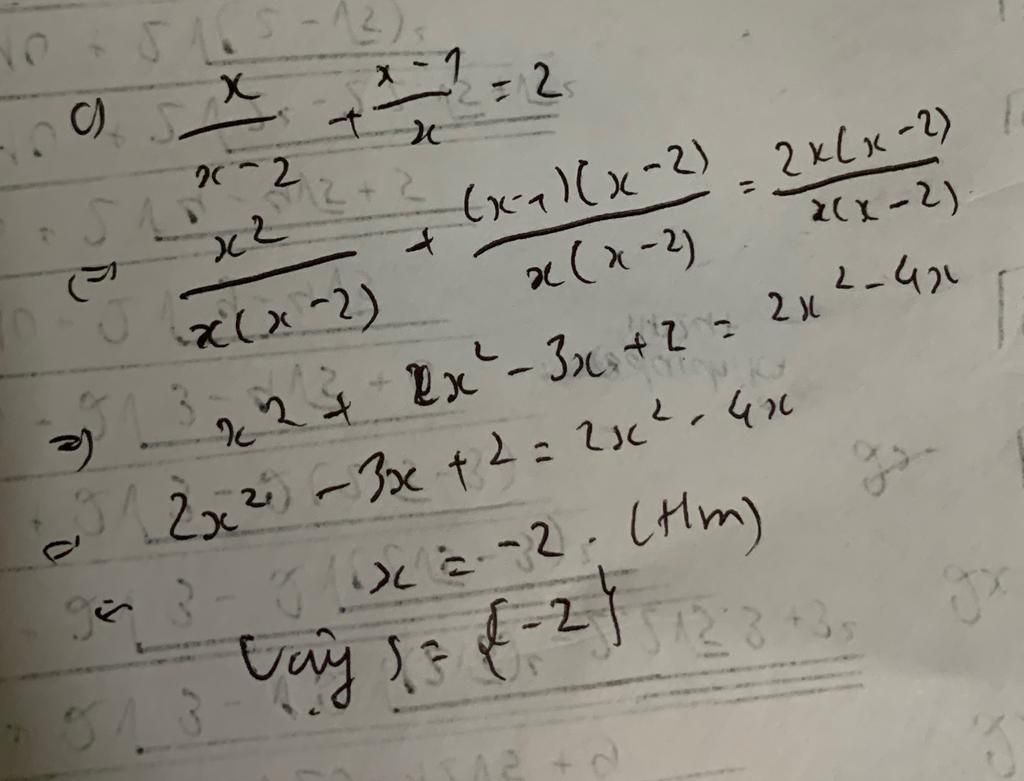 c) x/(x-2) + (x-1)/x = 2
(=) x²/(x(x-2)) + ((x-1)(x-2))/(x(x-2)) = (2x(x-2))/(x(x-2))
=) x² + x² - 3x + 2 = 2x² - 4x
2x² - 3x + 2 = 2x² - 4x
x = -2. (tm)
Vậy S = {-2}